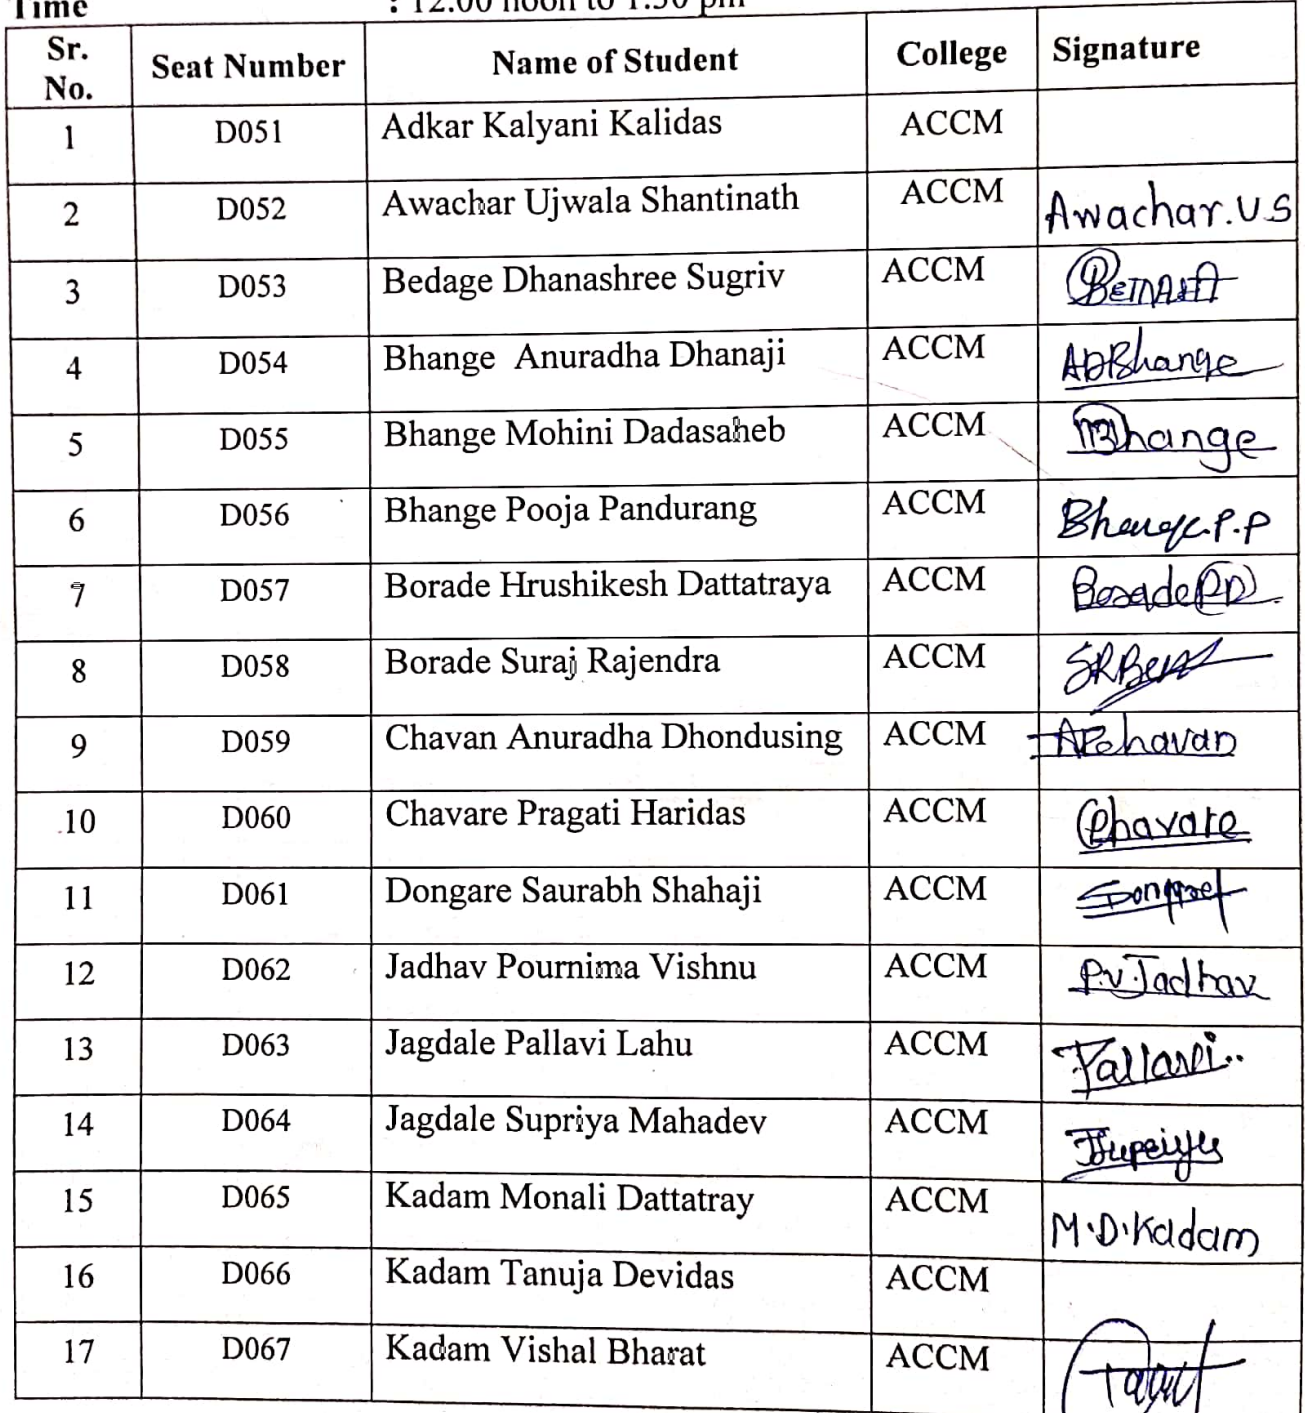 Time : 12.00 noon to 1.30 pm
Sr. No. Seat Number Name of Student College Signature
1 D051 Adkar Kalyani Kalidas ACCM
2 D052 Awachar Ujwala Shantinath ACCM Awachar.U.S
3 D053 Bedage Dhanashree Sugriv ACCM
4 D054 Bhange Anuradha Dhanaji ACCM ADBhange
5 D055 Bhange Mohini Dadasaheb ACCM MBhange
6 D056 Bhange Pooja Pandurang ACCM Bhange.P.P
7 D057 Borade Hrushikesh Dattatraya ACCM
8 D058 Borade Suraj Rajendra ACCM
9 D059 Chavan Anuradha Dhondusing ACCM
10 D060 Chavare Pragati Haridas ACCM Chavare
11 D061 Dongare Saurabh Shahaji ACCM
12 D062 Jadhav Pournima Vishnu ACCM P.V.Jadhav
13 D063 Jagdale Pallavi Lahu ACCM Pallavi..
14 D064 Jagdale Supriya Mahadev ACCM
15 D065 Kadam Monali Dattatray ACCM M.D.Kadam
16 D066 Kadam Tanuja Devidas ACCM
17 D067 Kadam Vishal Bharat ACCM